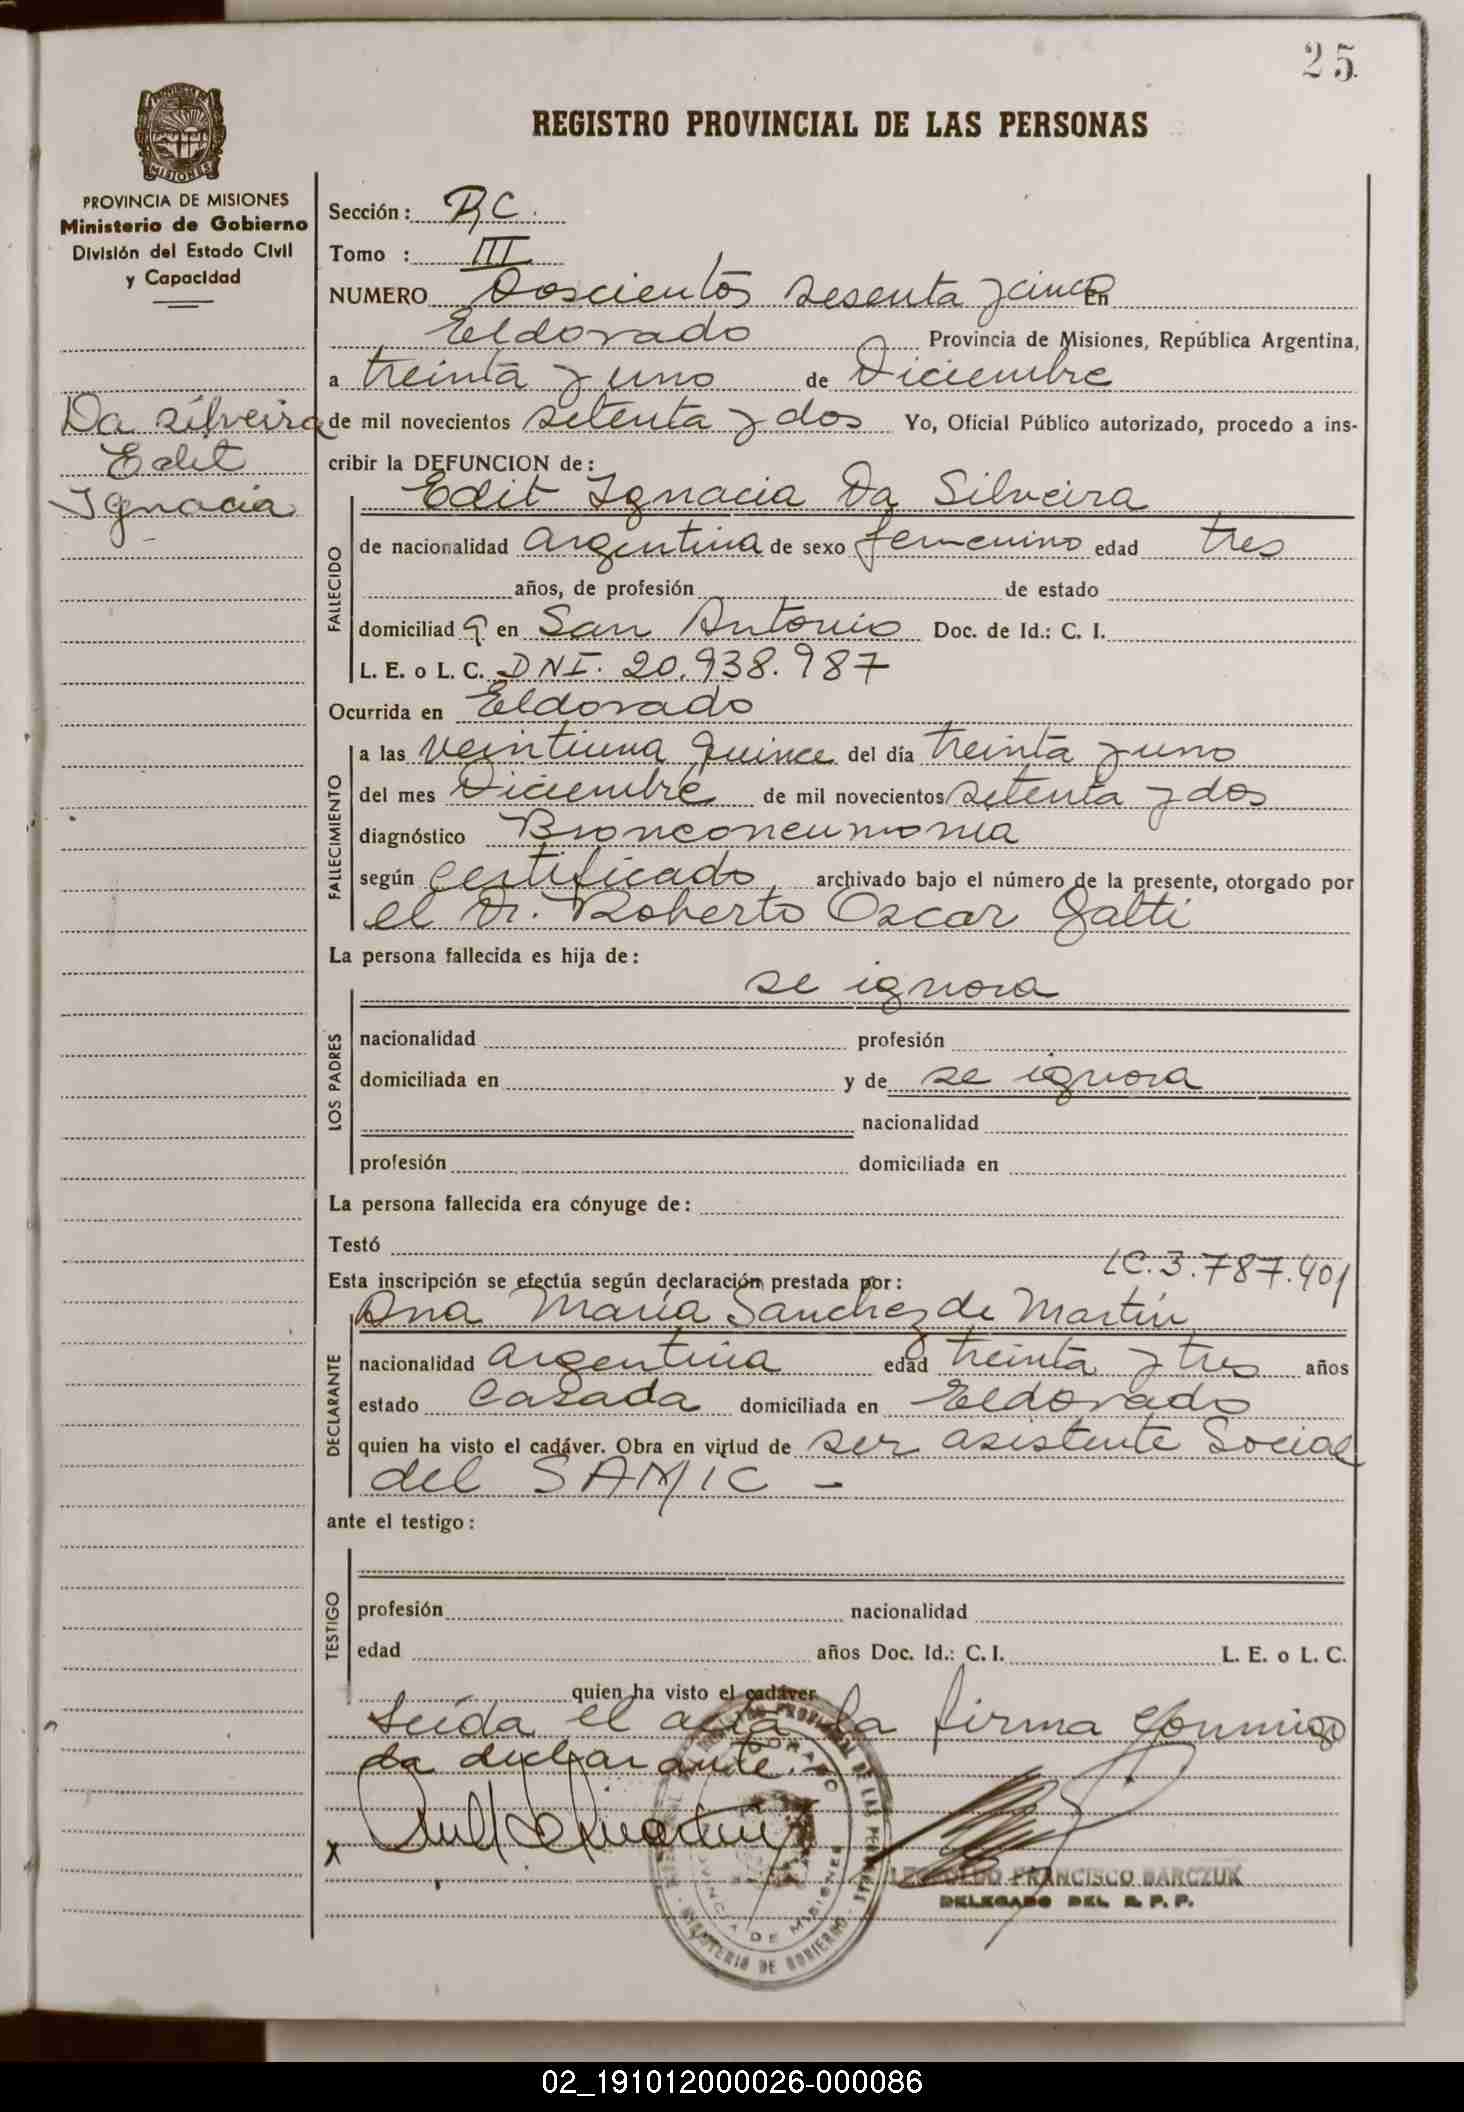 25
REGISTRO PROVINCIAL DE LAS PERSONAS
MISIONES
PROVINCIA DE MISIONES
Ministerio de Gobierno
División del Estado Civil
y Capacidad
Da Silveira
Edit
Ignacia
Sección: RC.
Tomo : III
NUMERO Doscientos sesenta y cinco En
Eldorado Provincia de Misiones, República Argentina,
a treinta y uno de Diciembre
de mil novecientos setenta y dos Yo, Oficial Público autorizado, procedo a ins-
cribir la DEFUNCION de:
Edit Ignacia Da Silveira
FALLECIDO
de nacionalidad argentina de sexo femenino edad tres
años, de profesión de estado
domiciliad a en San Antonio Doc. de Id.: C. I.
L. E. o L. C. DNI. 20.938.987
Ocurrida en Eldorado
FALLECIMIENTO
a las veintiuna quince del día treinta y uno
del mes Diciembre de mil novecientos setenta y dos
diagnóstico Bronconeumonia
según certificado archivado bajo el número de la presente, otorgado por
el Dr. Roberto Oscar Galti
La persona fallecida es hija de:
se ignora
LOS PADRES
nacionalidad profesión
domiciliada en y de se ignora
nacionalidad
profesión domiciliada en
La persona fallecida era cónyuge de:
Testó
LC. 3.787.401
Esta inscripción se efectúa según declaración prestada por:
Ana María Sanchez de Martín
DECLARANTE
nacionalidad argentina edad treinta y tres años
estado casada domiciliada en Eldorado
quien ha visto el cadáver. Obra en virtud de ser asistente Social
del SAMIC -
ante el testigo:
TESTIGO
profesión nacionalidad
edad años Doc. Id.: C. I. L. E. o L. C.
quien ha visto el cadáver
Leída el acta la firma conmigo
la declarante.-
x
LEOPOLDO FRANCISCO BARCZUK
DELEGADO DEL R. P. P.
02_191012000026-000086